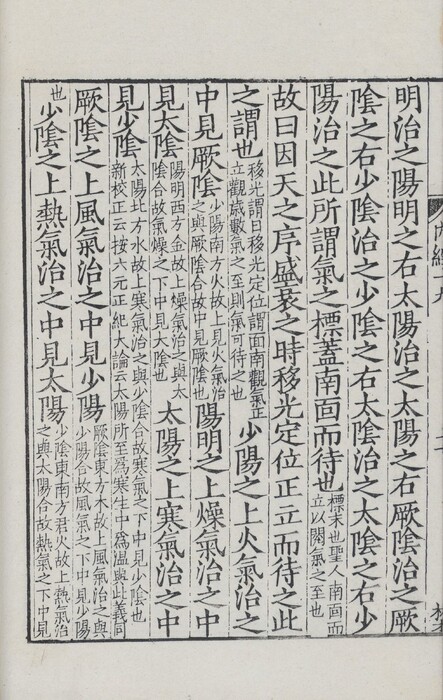 明治之陽明之右太陽治之太陽之右厥陰治之厥
陰之右少陰治之少陰之右太陰治之太陰之右少
陽治之此所謂氣之標蓋南面而待也標末也聖人南面而立以閱氣之至也
故曰因天之序盛衰之時移光定位正立而待之此
之謂也移光謂日移光定位謂面南觀氣正立觀歲數氣之至則氣可待之也少陽之上火氣治之
中見厥陰少陽南方火故上見火氣治之與厥陰合故中見厥陰也陽明之上燥氣治之中
見太陰陽明西方金故上燥氣治之與太陰合故燥氣之下中見太陰也太陽之上寒氣治之中
見少陰太陽北方水故上寒氣治之與少陰合故寒氣之下中見少陰也新校正云按六元正紀大論云太陽所至為寒生中為溫與此義同
厥陰之上風氣治之中見少陽厥陰東方木故上風氣治之與少陽合故風氣之下中見少陽
也少陰之上熱氣治之中見太陽少陰東南方君火故上熱氣治之與太陽合故熱氣之下中見